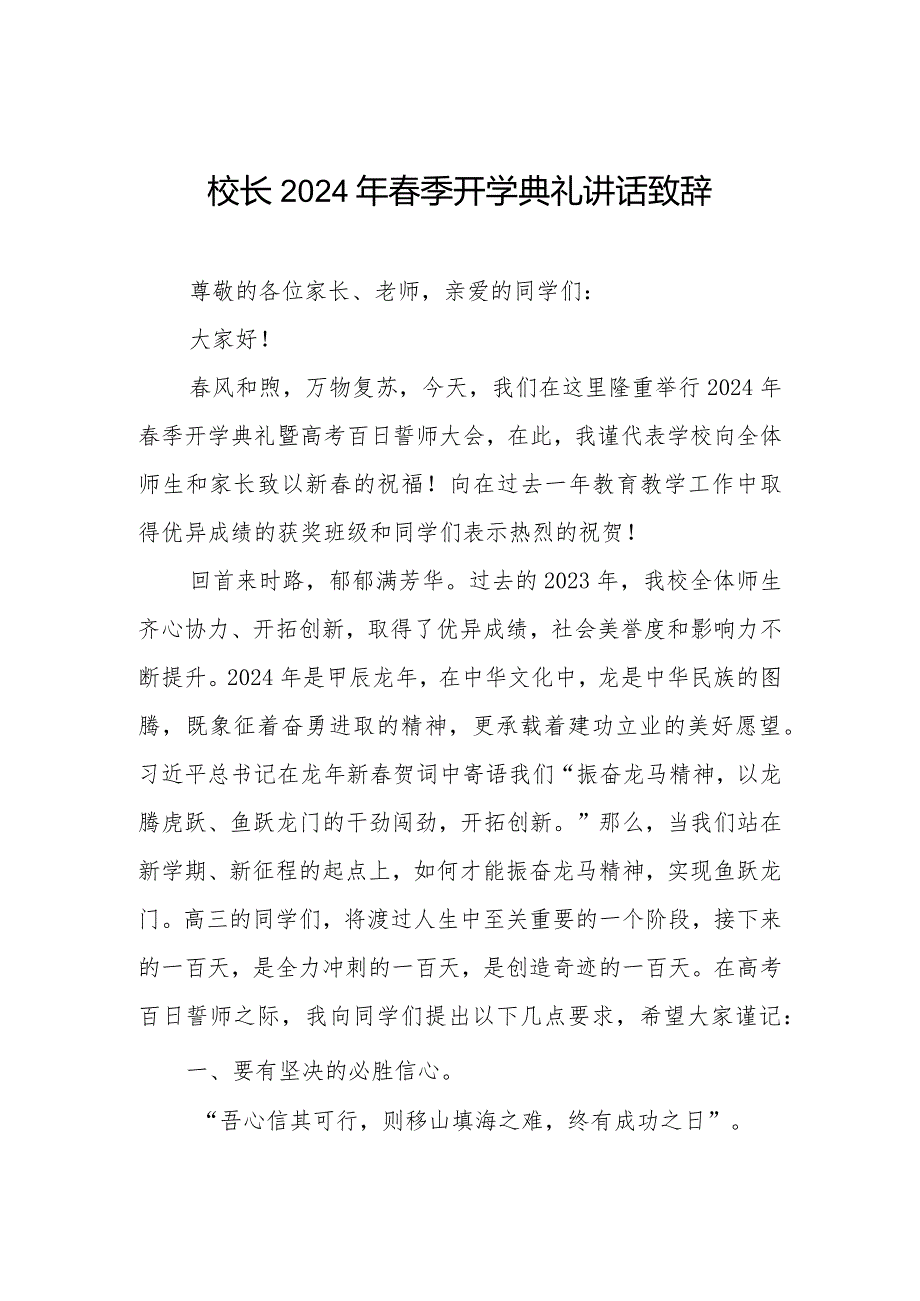 校长 2024 年春季开学典礼讲话致辞
尊敬的各位家长、老师，亲爱的同学们：
大家好！
春风和煦，万物复苏，今天，我们在这里隆重举行 2024 年
春季开学典礼暨高考百日誓师大会，在此，我谨代表学校向全体
师生和家长致以新春的祝福！向在过去一年教育教学工作中取
得优异成绩的获奖班级和同学们表示热烈的祝贺！
回首来时路，郁郁满芳华。过去的 2023 年，我校全体师生
齐心协力、开拓创新，取得了优异成绩，社会美誉度和影响力不
断提升。2024 年是甲辰龙年，在中华文化中，龙是中华民族的图
腾，既象征着奋勇进取的精神，更承载着建功立业的美好愿望。
习近平总书记在龙年新春贺词中寄语我们“振奋龙马精神，以龙
腾虎跃、鱼跃龙门的干劲闯劲，开拓创新。”那么，当我们站在
新学期、新征程的起点上，如何才能振奋龙马精神，实现鱼跃龙
门。高三的同学们，将渡过人生中至关重要的一个阶段，接下来
的一百天，是全力冲刺的一百天，是创造奇迹的一百天。在高考
百日誓师之际，我向同学们提出以下几点要求，希望大家谨记：
一、要有坚决的必胜信心。
“吾心信其可行，则移山填海之难，终有成功之日”。